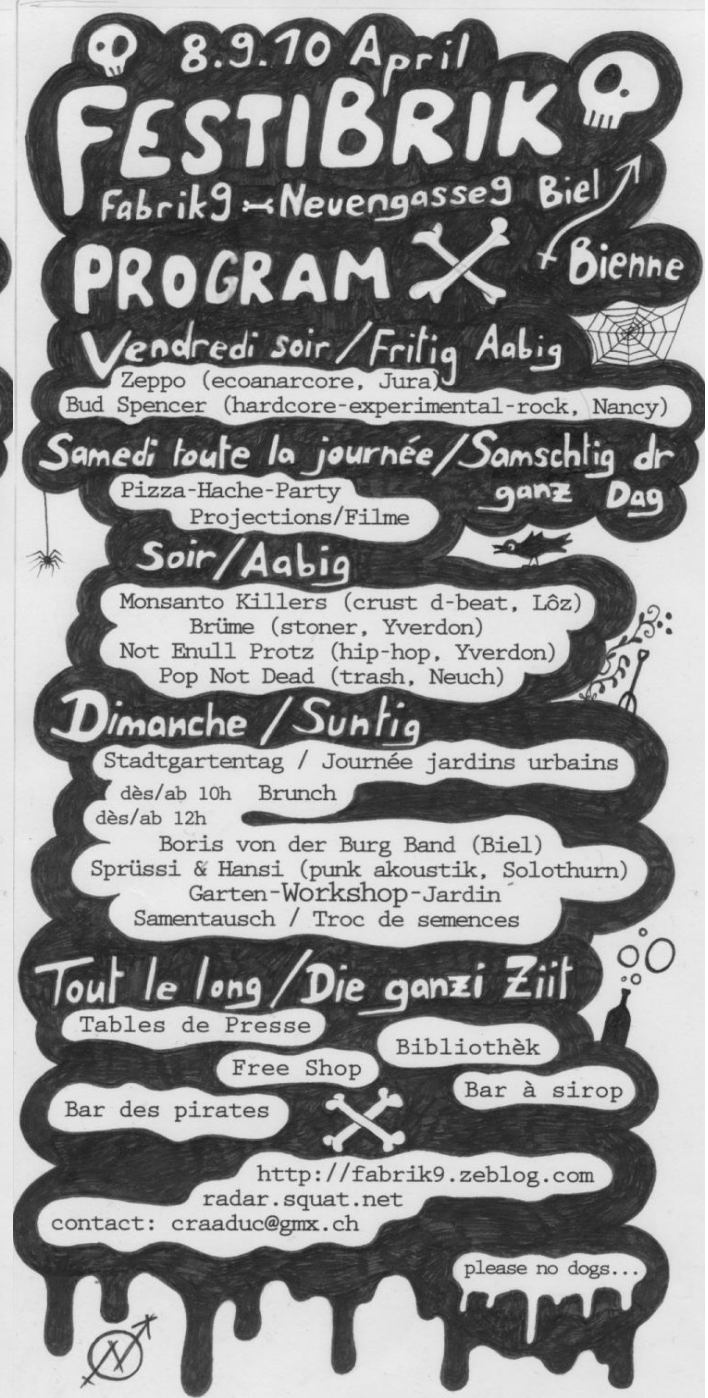 8.9.10 April
FESTIBRIK
Fabrik9 Neuengasse9 Biel
PROGRAM + Bienne
Vendredi soir/Fritig Aabig
Zeppo (ecoanarcore, Jura)
Bud Spencer (hardcore-experimental-rock, Nancy)
Samedi toute la journée/Samschtig dr
ganz Dag
Pizza-Hache-Party
Projections/Filme
Soir/Aabig
Monsanto Killers (crust d-beat, Lôz)
Brüme (stoner, Yverdon)
Not Enull Protz (hip-hop, Yverdon)
Pop Not Dead (trash, Neuch)
Dimanche/Suntig
Stadtgartentag / Journée jardins urbains
dès/ab 10h Brunch
dès/ab 12h
Boris von der Burg Band (Biel)
Sprüssi & Hansi (punk akoustik, Solothurn)
Garten-Workshop-Jardin
Samentausch / Troc de semences
Tout le long/Die ganzi Ziit
Tables de Presse
Bibliothèk
Free Shop
Bar à sirop
Bar des pirates
http://fabrik9.zeblog.com
radar.squat.net
contact: craaduc@gmx.ch
please no dogs...
N